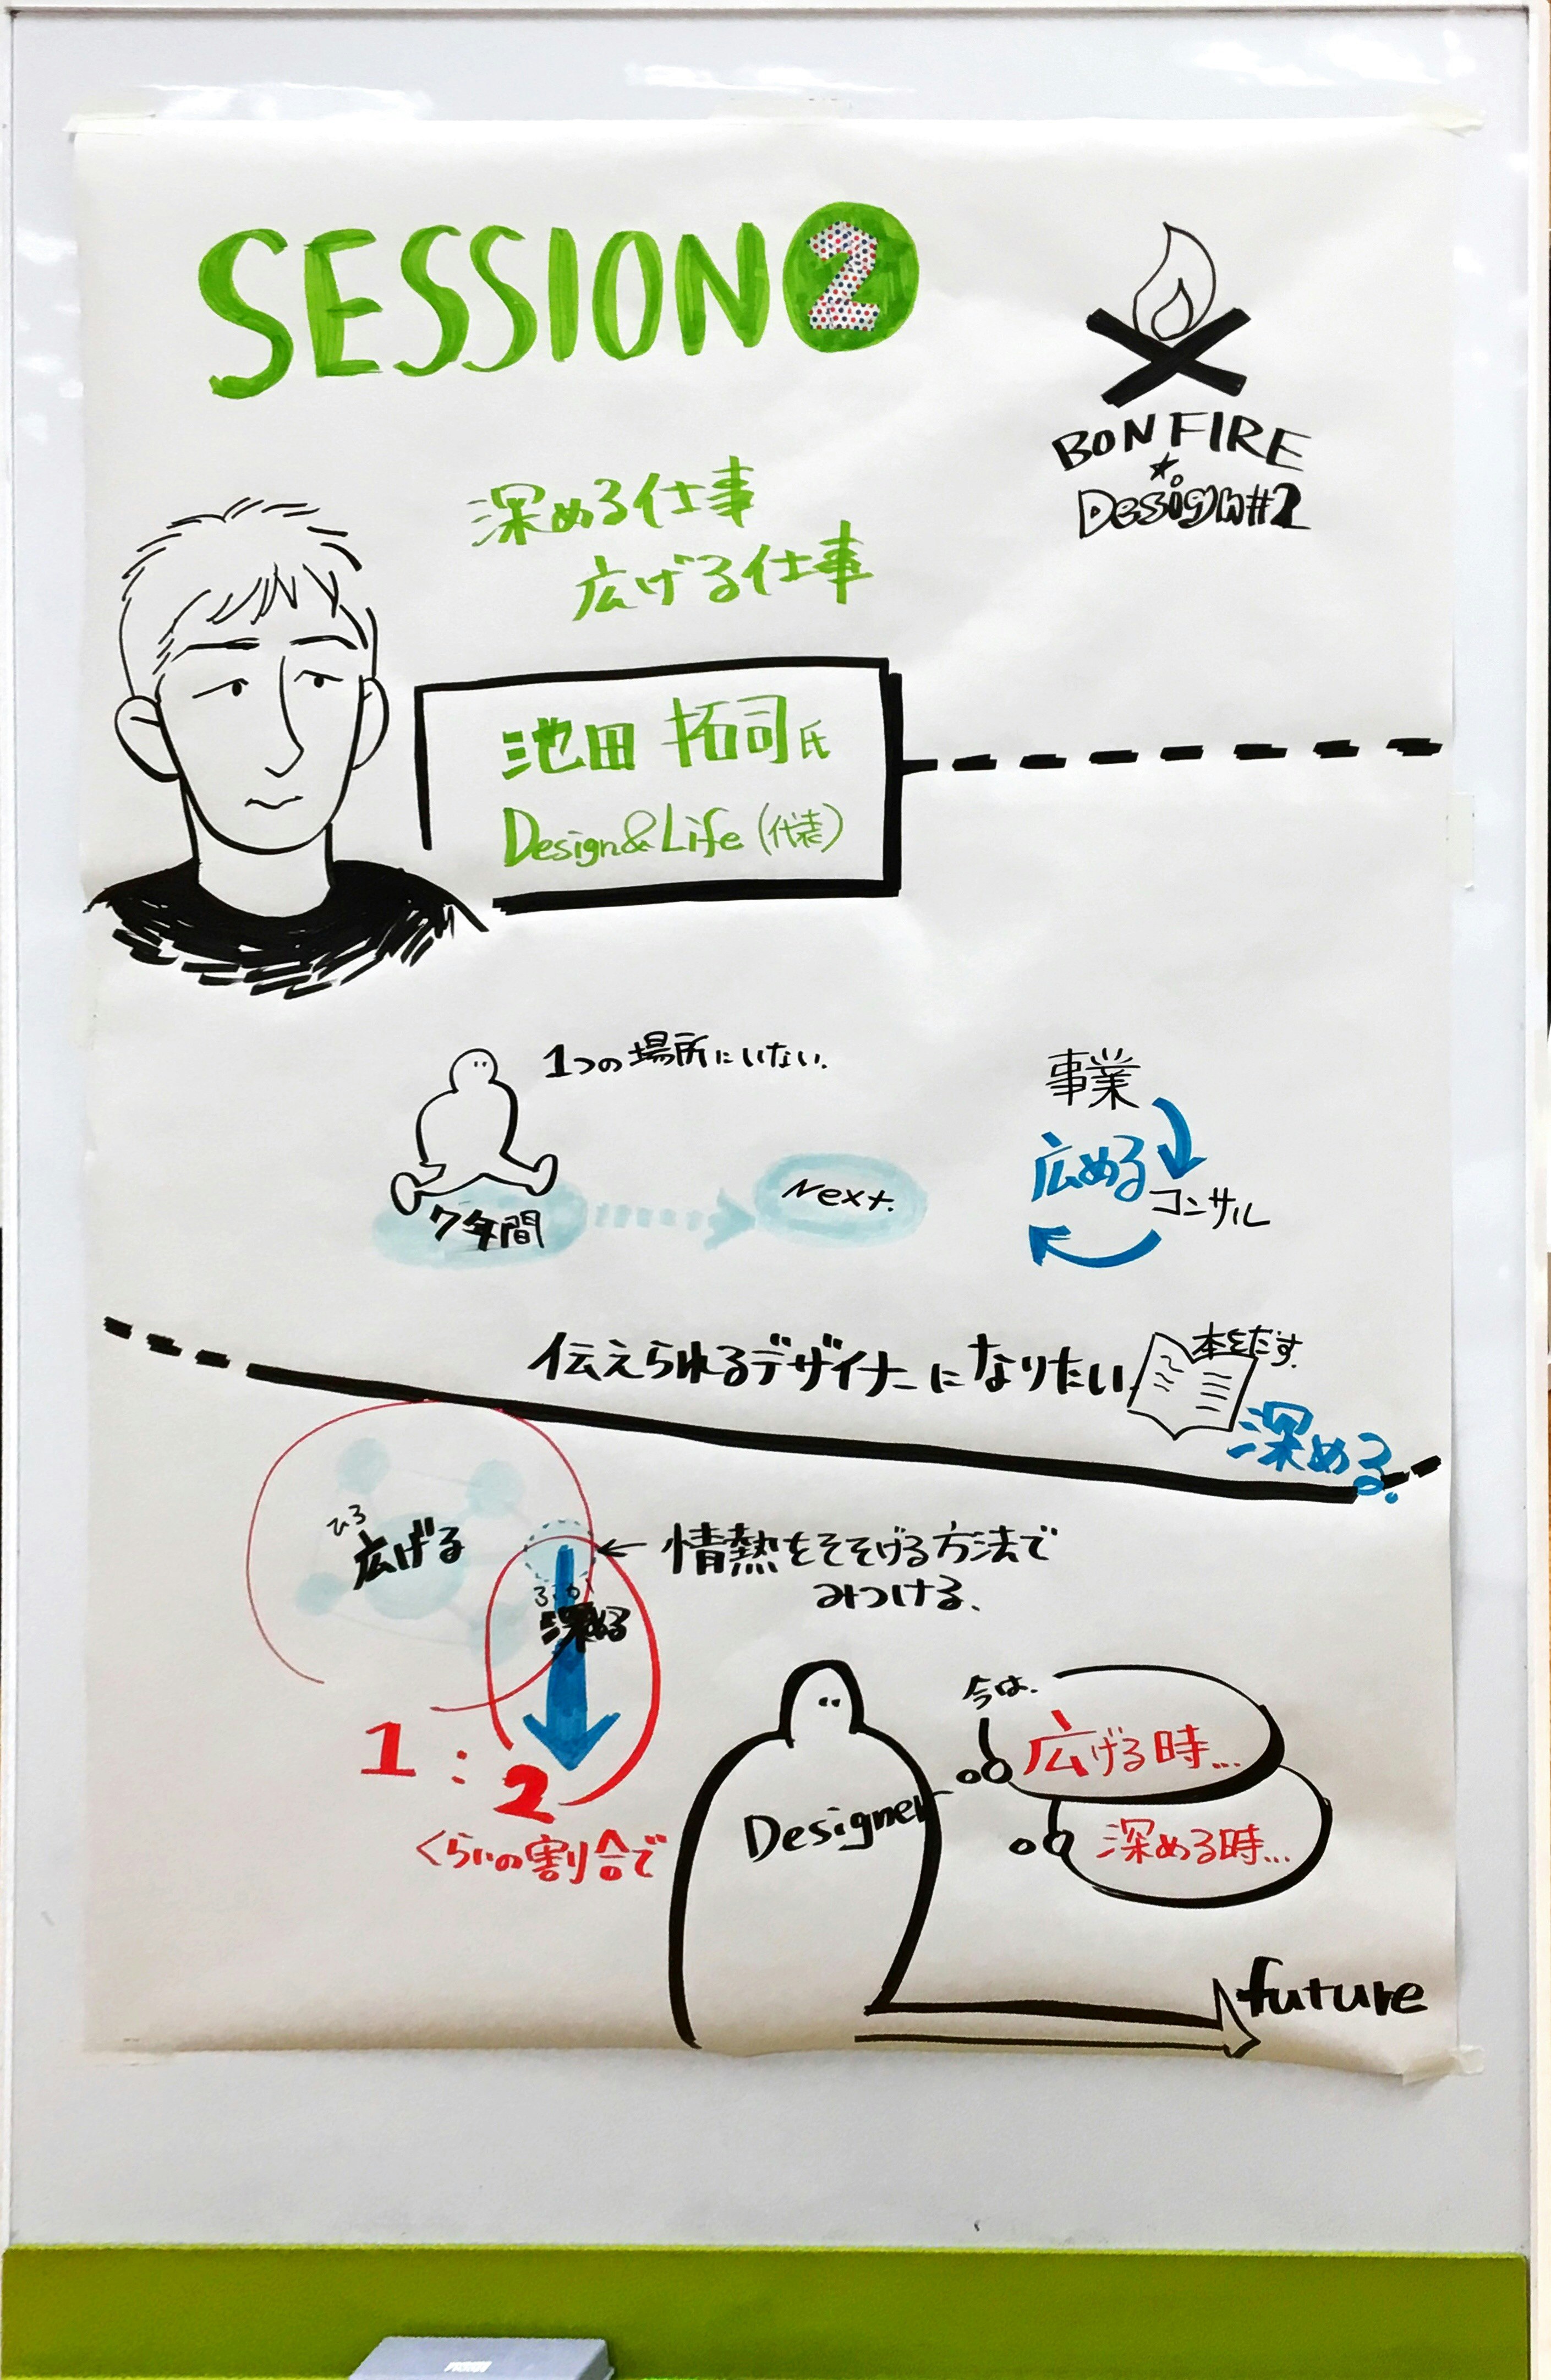 SESSION2
BONFIRE
Design#2
深める仕事
広げる仕事
池田 拓司氏
Design&Life (代表)
1つの場所にいない.
7年間
Next.
事業
広める
コンサル
伝えられるデザイナーになりたい.
本をだす.
深める.
ひろ
広げる
情熱をそそげる方法で
みつける.
ふか
深める
1:2
くらいの割合で
Designer
今は.
広げる時...
深める時...
future